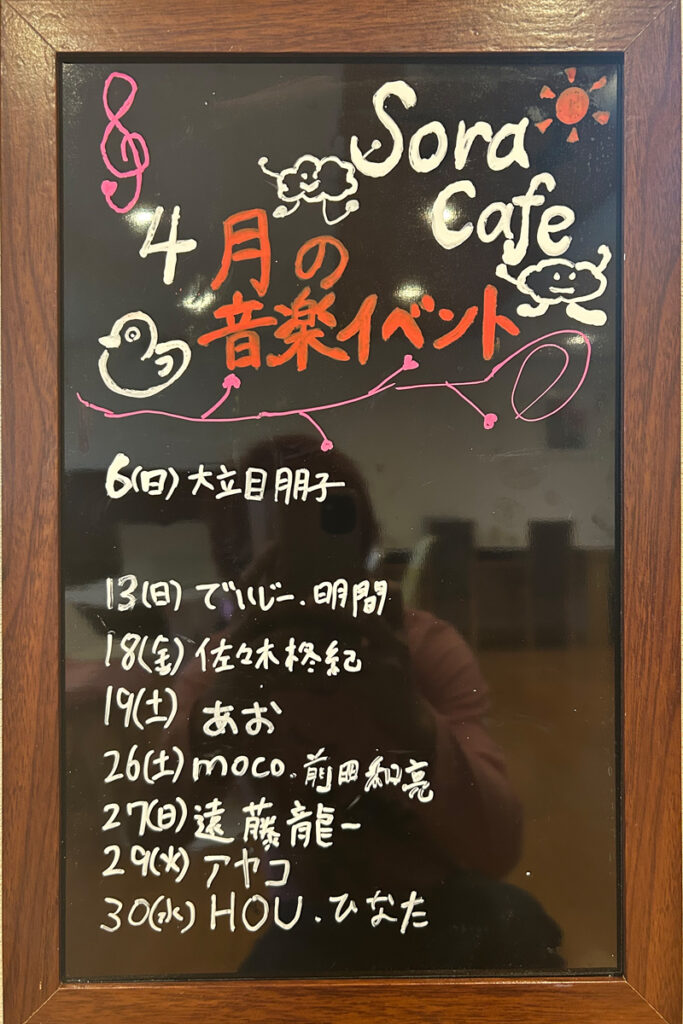 Sora
Cafe
4月の
音楽イベント
6(日) 大立目朋子
13(日) でいじー.明間
18(金) 佐々木柊紀
19(土) あお
26(土) moco.前田和亮
27(日) 遠藤龍一
29(火) アヤコ
30(水) HOU.ひなた